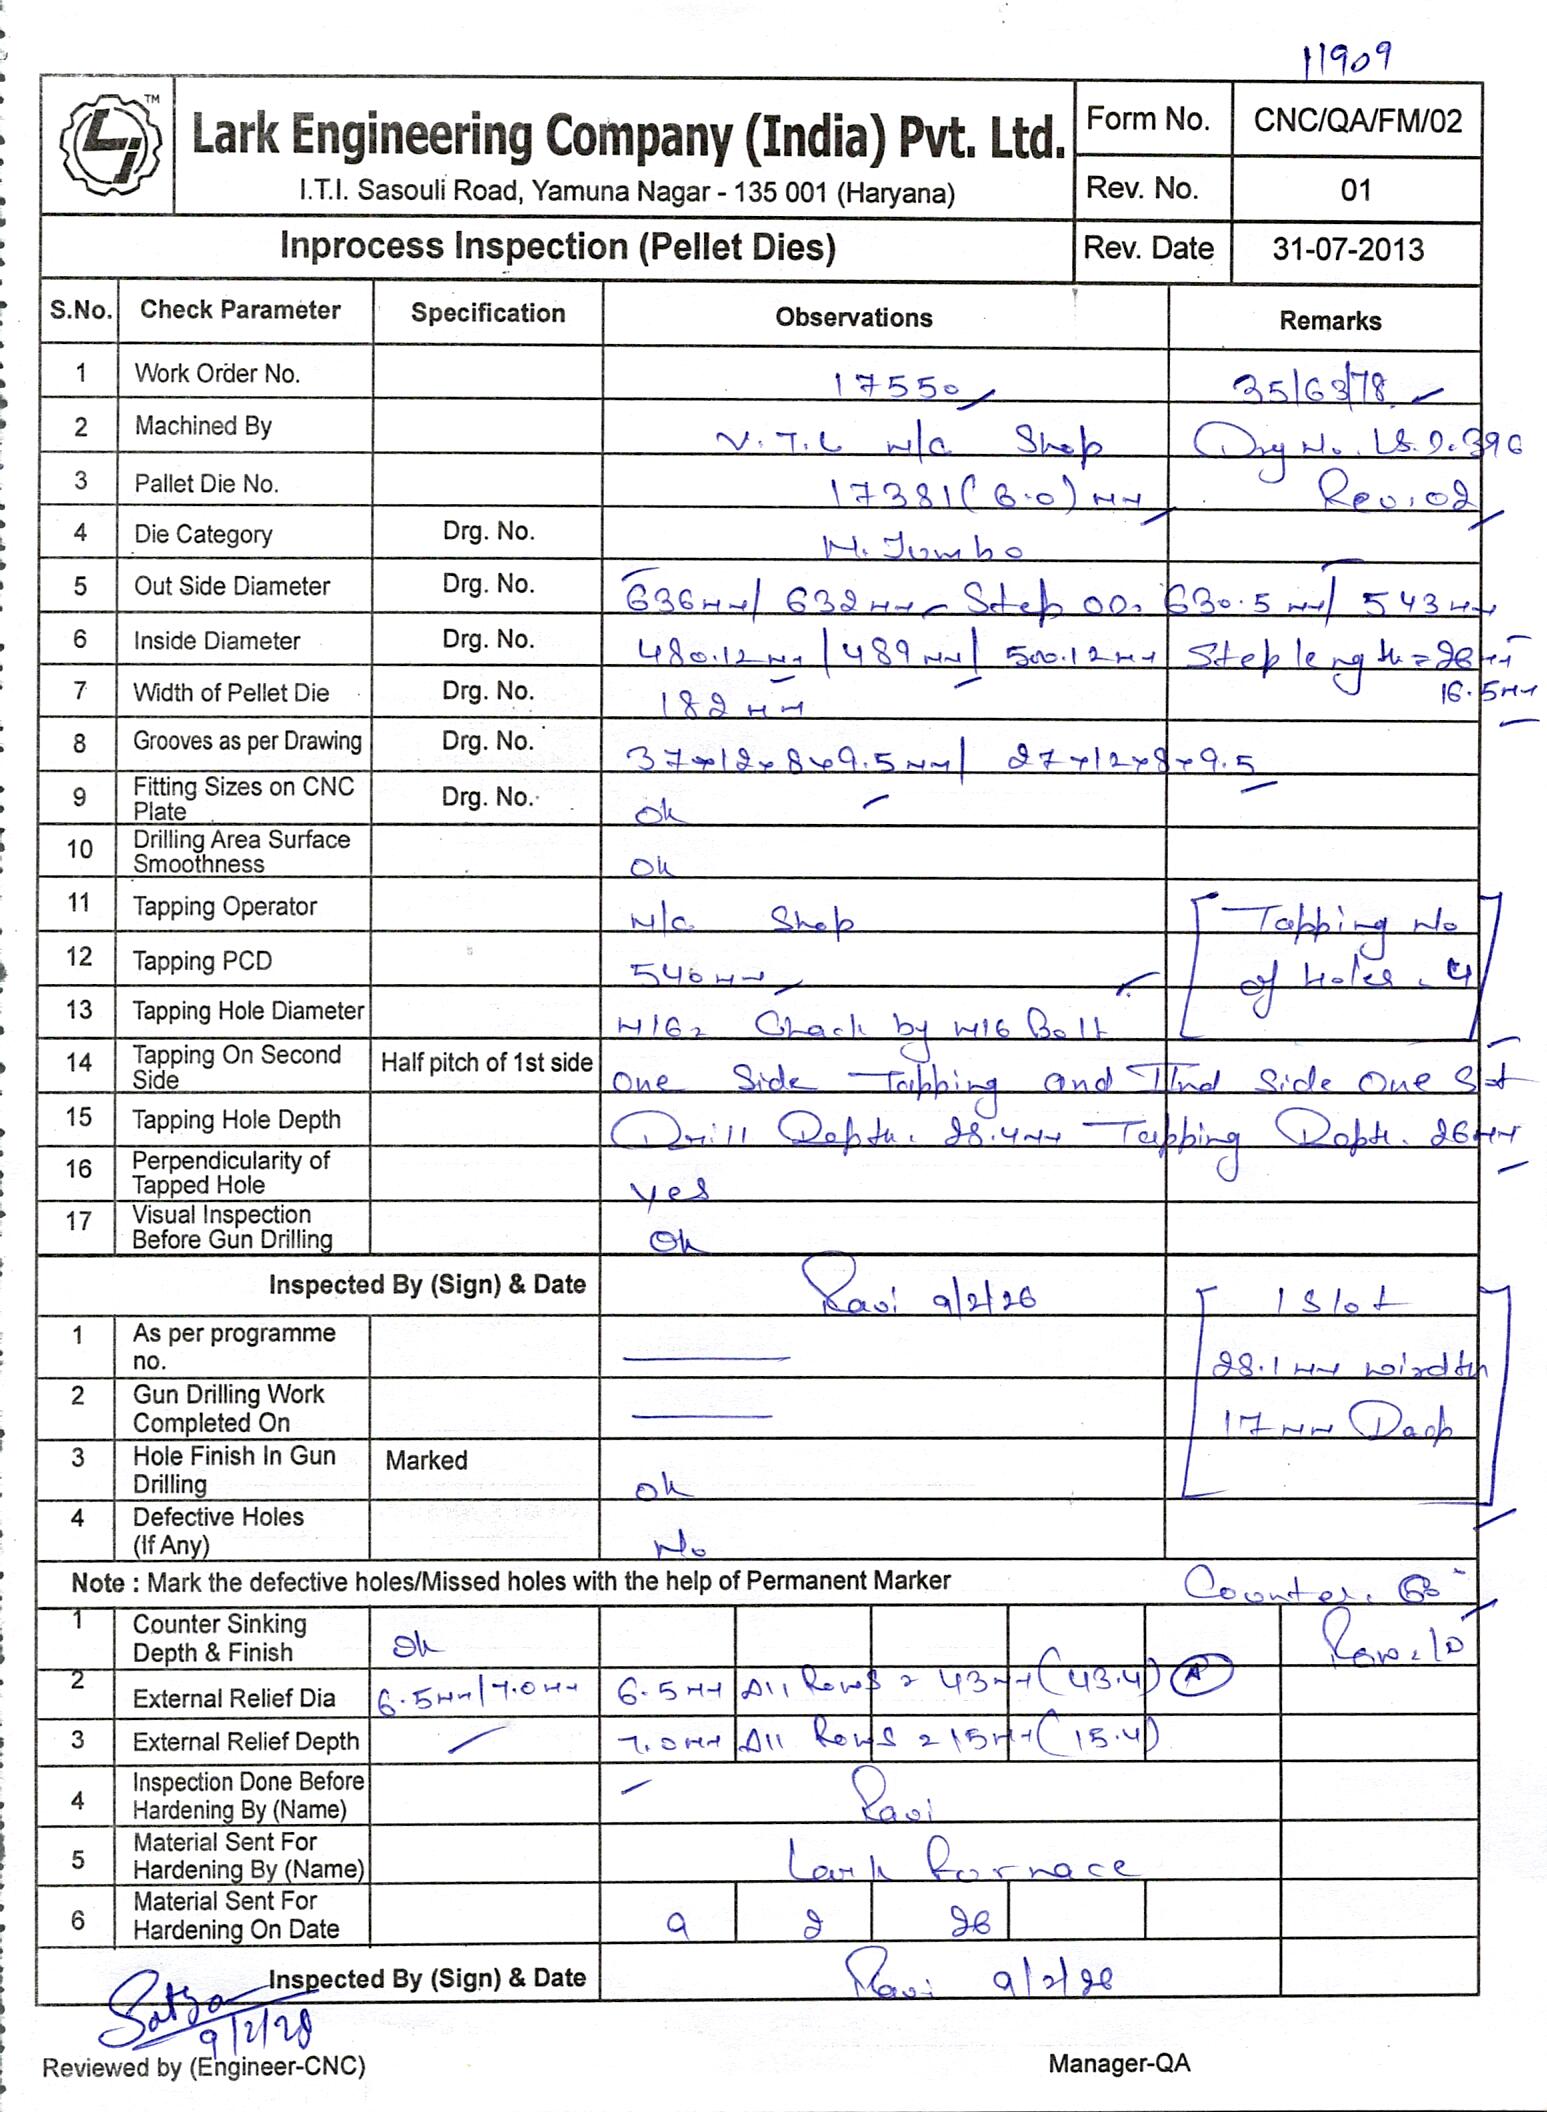 11909
LJ TM
Lark Engineering Company (India) Pvt. Ltd.
I.T.I. Sasouli Road, Yamuna Nagar - 135 001 (Haryana)
Form No. CNC/QA/FM/02
Rev. No. 01
Inprocess Inspection (Pellet Dies) Rev. Date 31-07-2013
S.No. Check Parameter Specification Observations Remarks
1 Work Order No. 17550 35/63/78
2 Machined By V.T.L M/c Shop Drg No. LS.D.396
3 Pallet Die No. 17381(6.0)MM Rev.02
4 Die Category Drg. No. M.Jumbo
5 Out Side Diameter Drg. No. 636MM/ 632MM Step OD. 630.5MM/ 543MM
6 Inside Diameter Drg. No. 480.12MM/489MM/ 500.12MM Step length=26MM
16.5MM
7 Width of Pellet Die Drg. No. 182MM
8 Grooves as per Drawing Drg. No. 37x12x8x9.5MM/ 27x12x8x9.5
9 Fitting Sizes on CNC Plate Drg. No. Ok
10 Drilling Area Surface Smoothness Ok
11 Tapping Operator M/c Shop Tapping No
12 Tapping PCD 540MM of Holes. 4
13 Tapping Hole Diameter M16= Chack by M16 Bolt
14 Tapping On Second Side Half pitch of 1st side One Side Tapping and IInd Side One
15 Tapping Hole Depth Drill Depth. 28.4MM Tapping Depth. 26MM
16 Perpendicularity of Tapped Hole Yes
17 Visual Inspection Before Gun Drilling Ok
Inspected By (Sign) & Date Ravi 9/2/26 1 Slot
1 As per programme no. 28.1MM wirdth
2 Gun Drilling Work Completed On 17MM Deep
3 Hole Finish In Gun Drilling Marked Ok
4 Defective Holes (If Any) No
Note : Mark the defective holes/Missed holes with the help of Permanent Marker Counter. 60
1 Counter Sinking Depth & Finish Ok
2 External Relief Dia 6.5MM/7.0MM 6.5MM All Rows = 43MM(43.4) A
3 External Relief Depth 7.0MM All Rows = 15MM(15.4)
4 Inspection Done Before Hardening By (Name) Ravi
5 Material Sent For Hardening By (Name) Lark Furnace
6 Material Sent For Hardening On Date 9 2 26
Inspected By (Sign) & Date Ravi 9/2/26
Satya
Reviewed by (Engineer-CNC) Manager-QA